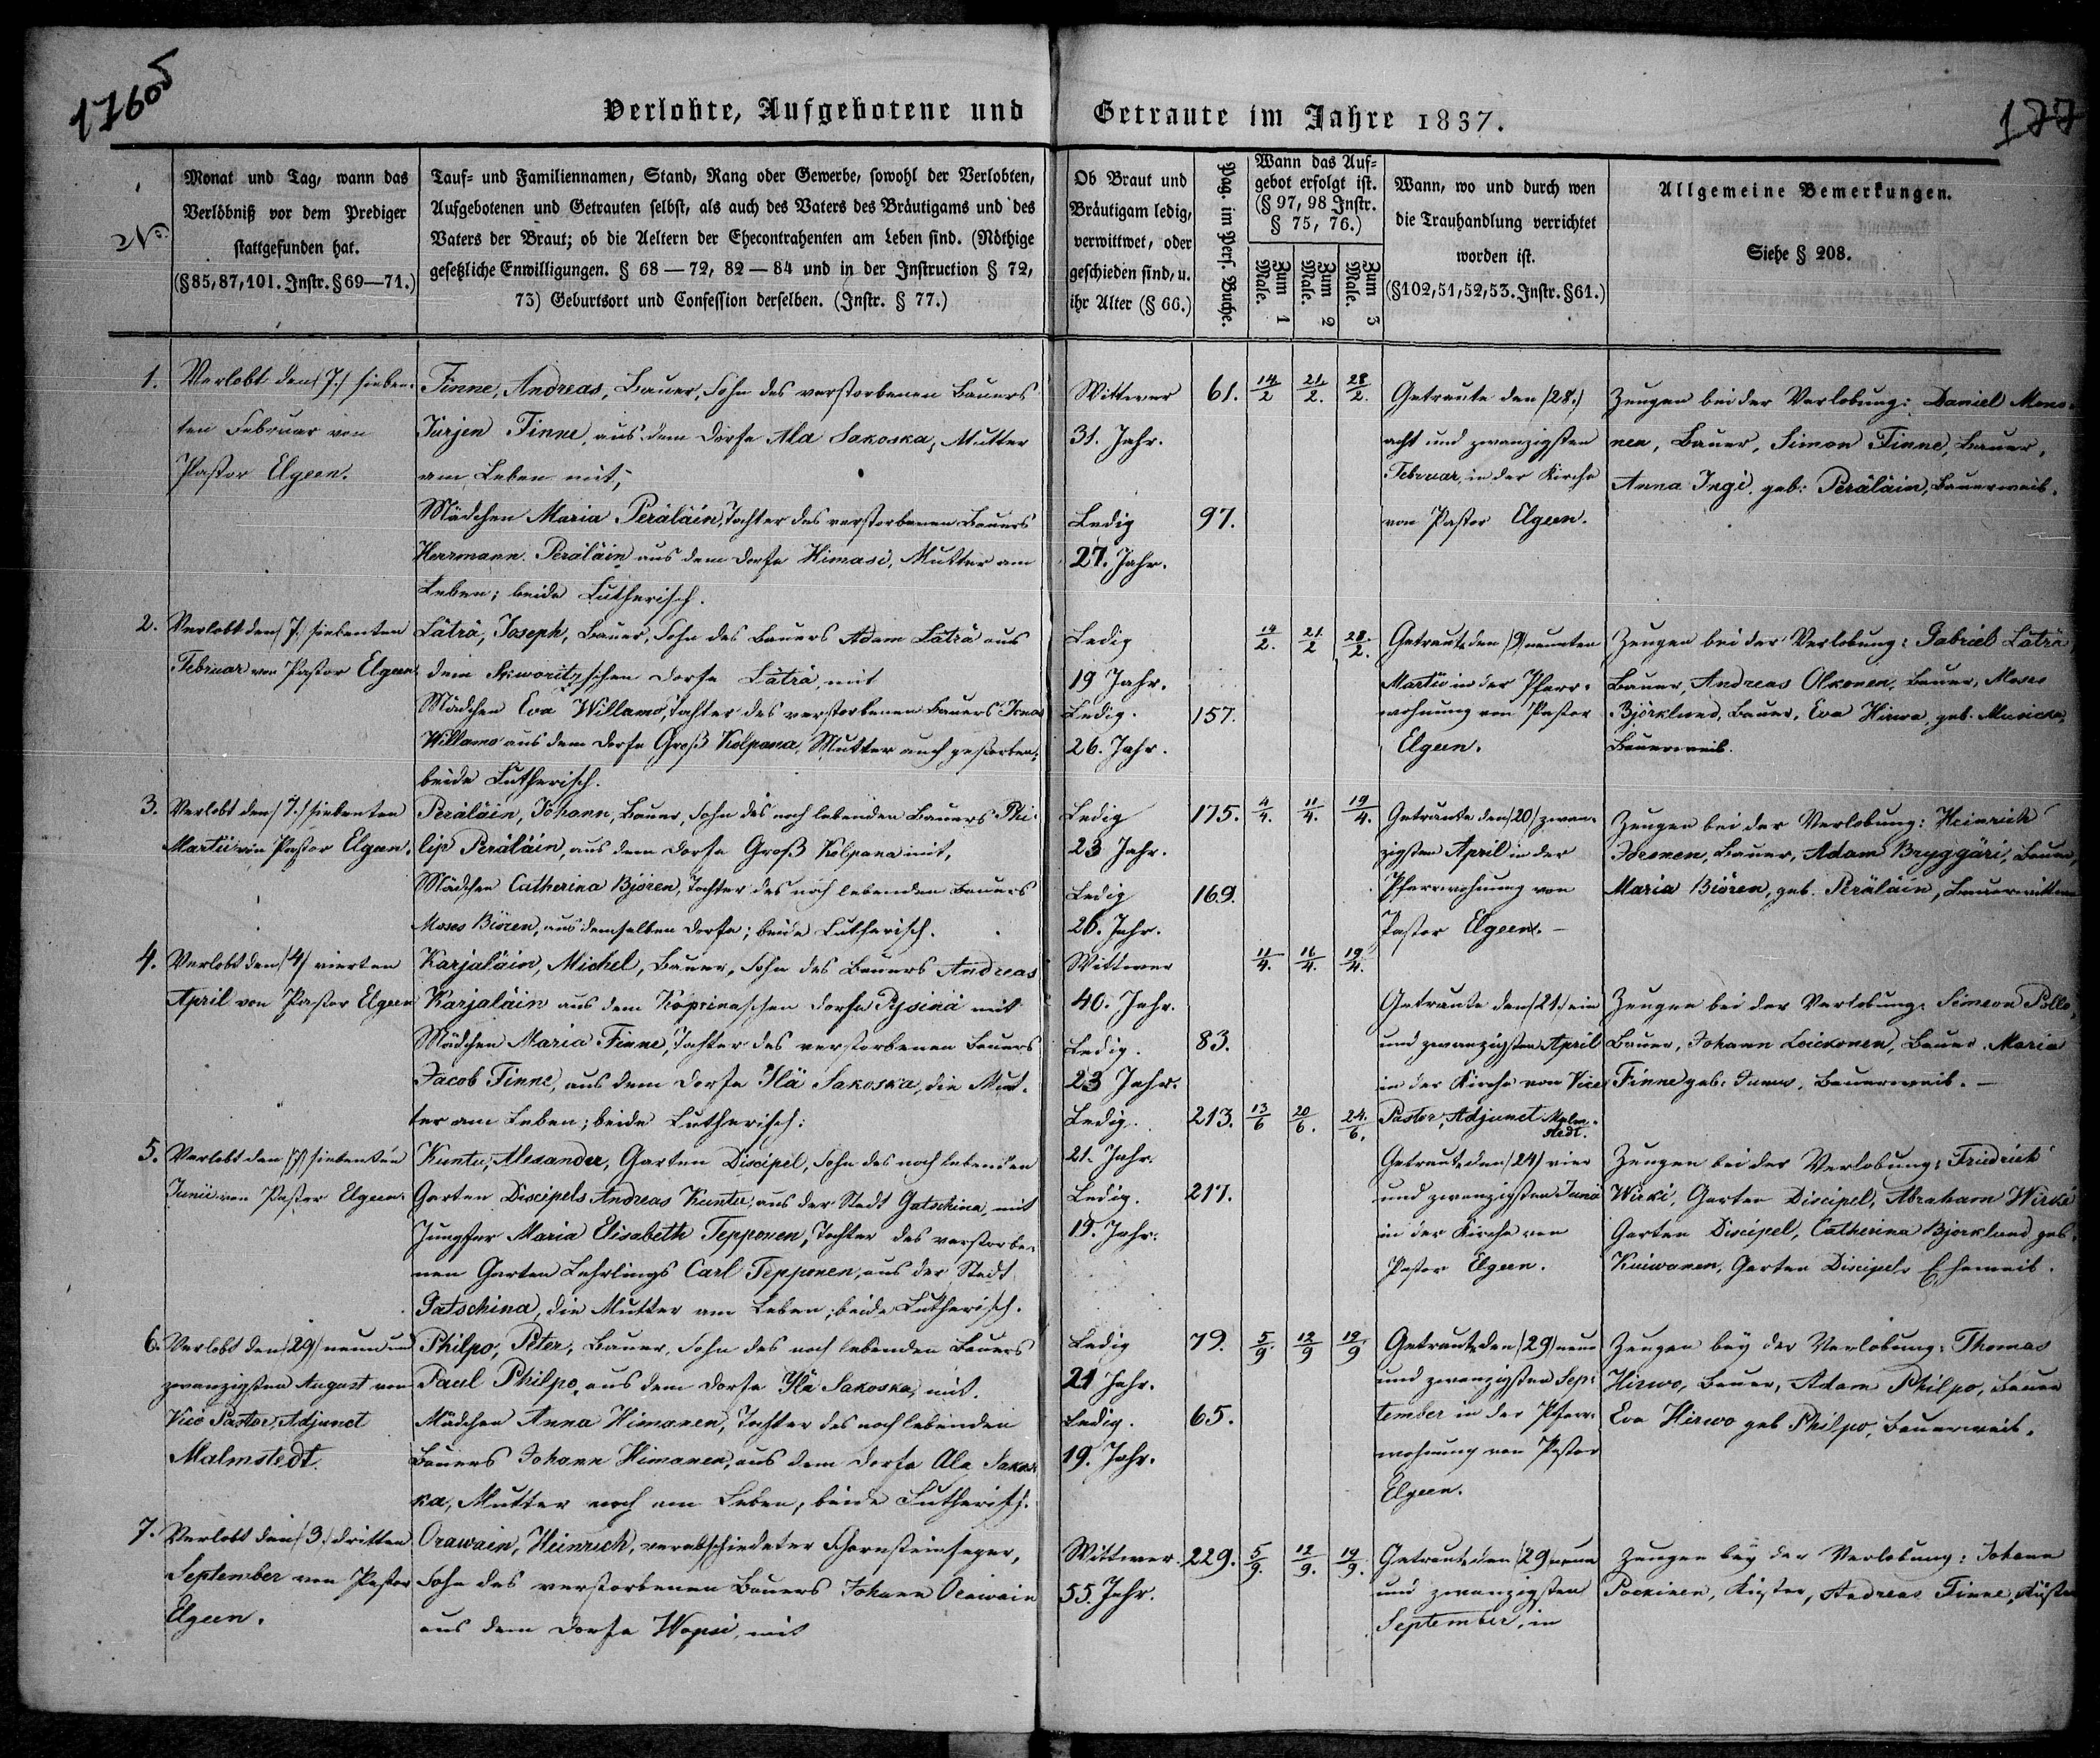 1760
5
177
Verlobte, Aufgebotene und Getraute im Jahre 1837.
No.
Monat und Tag, wann das
Verlöbniß vor dem Prediger
stattgefunden hat.
(§85,87,101. Instr. §69—71.)
Tauf- und Familiennamen, Stand, Rang oder Gewerbe, sowohl der Verlobten,
Aufgebotenen und Getrauten selbst, als auch des Vaters des Bräutigams und des
Vaters der Braut; ob die Aeltern der Ehecontrahenten am Leben sind. (Nöthige
gesetzliche Enwilligungen. § 68—72, 82—84 und in der Instruction § 72,
73) Geburtsort und Confession derselben. (Instr. § 77.)
Ob Braut und
Bräutigam ledig,
verwittwet, oder
geschieden sind, u.
ihr Alter (§ 66.)
Pag. im Pers. Buche.
Wann das Auf-
gebot erfolgt ist.
(§ 97, 98 Instr.
§ 75, 76.)
Zum 1 Male.
Zum 2 Male.
Zum 3 Male.
Wann, wo und durch wen
die Trauhandlung verrichtet
worden ist.
(§102,51,52,53. Instr. §61.)
Allgemeine Bemerkungen.
Siehe § 208.
1.
Verlobt den /7./ sieben-
ten Februar von
Pastor Elgeen.
Finne, Andreas, Bauer, Sohn des verstorbenen Bauers
Jurjen Finne, aus dem Dorfe Ala Sakoska, Mutter
am Leben mit,
Mädchen Maria Peräläin, Tochter des verstorbenen Bauers
Herrmann Peräläin aus dem Dorfe Himasi, Mutter am
Leben; beide Lutherisch.
Wittwer
31. Jahr.
Ledig
27. Jahr.
61.
97.
14/2
21/2.
28/2.
Getraute den /28./
acht und zwanzigsten
Februar, in der Kirche
von Pastor Elgeen.
Zeugen bei der Verlobung: Daniel Mono-
nen, Bauer, Simon Finne, Bauer,
Anna Ingi, geb: Peräläin, Bauerweib.
2.
Verlobt den /7. siebenten
Februar von Pastor Elgeen
Läträ, Joseph, Bauer, Sohn des Bauers Adam Läträ aus
dem Skworitzschen Dorfe Läträ, mit
Mädchen Eva Willamo, Tochter des verstorbenen Bauers Jonas
Willamo aus dem Dorfe Groß Kolpana, Mutter auch gestorben,
beide Lutherisch.
Ledig
19 Jahr.
Ledig.
26. Jahr.
157.
14/2.
21/2
28/2.
Getraut den /9/ neunten
Martii in der Pfarr-
wohnung von Pastor
Elgeen.
Zeugen bei der Verlobung: Gabriel Läträ,
Bauer, Andreas Olkonen, Bauer, Moses
Björklund, Bauer, Eva Hirwa, geb.
Bauerweib.
3.
Verlobt den /7./ siebenten
Martii von Pastor Elgeen.
Peräläin, Johann, Bauer, Sohn des noch lebenden Bauers Phi-
lip Peräläin, aus dem Dorfe Groß Kolpana mit,
Mädchen Catherina Björen, Tochter des noch lebenden Bauers
Moses Biören, aus demselben Dorfe; beide Lutherisch.
Ledig
23 Jahr.
Ledig
26. Jahr.
175.
169.
4/4.
11/4.
19/4.
Getraute den /20/ zwan-
zigsten April in der
Pfarrwohnung von
Pastor Elgeen. —
Zeugen bei der Verlobung: Heinrich
Bauer, Adam Bryggäri, Bauer,
Maria Biören, geb. Peräläin, Bauerwittwe
4.
Verlobt den /4/ vierten
April von Pastor Elgeen
Karjaläin, Michel, Bauer, Sohn des Bauers Andreas
Karjaläin aus dem Koprinaschen Dorfe Pysinä mit
Mädchen Maria Finne, Tochter des verstorbenen Bauers
Jacob Finne, aus dem Dorfe Ylä Sakoska, die Mut-
ter am Leben; beide Lutherisch:
Wittwer
40. Jahr.
Ledig.
23 Jahr.
83.
11/4.
16/4.
19/4.
Getraute den /21./ ein
und zwanzigsten April
in der Kirche von Vice
Pastor, Adjunct Malm-
stedt.
Zeugen bei der Verlobung: Simeon Pollo,
Bauer, Johann Leickonen, Bauer, Maria
Finne geb: Bauerweib. —
5.
Verlobt den /7/ siebenten
Junii von Pastor Elgeen.
Kuntu, Alexander, Garten Discipel, Sohn des noch lebenden
Garten Discipels Andreas Kuntu, aus der Stadt Gatschina, mit
Jungfer Maria Elisabeth Tepponen, Tochter des verstorbe-
nen Garten Lehrlings Carl Tepponen, aus der Stadt
Gatschina, die Mutter am Leben; beide Lutherisch.
Ledig.
21. Jahr.
Ledig.
19. Jahr.
213.
217.
13/6
20/6.
24./6.
Getraut den /24/ vier
und zwanzigsten Junii
in der Kirche von
Pastor Elgeen.
Zeugen bei der Verlobung: Friedrich
Wirki, Garten Discipel, Abraham Wirki
Garten Discipel, Catherina Bjorklund geb.
Kuiwanen, Garten Discipels Eheweib.
6.
Verlobt den /29/ neun und
zwanzigsten August von
Vice Pastor, Adjunct
Malmstedt.
Philpo, Peter, Bauer, Sohn des noch lebenden Bauers
Paul Philpo, aus dem Dorfe Ylä Sakoska, mit.
Mädchen Anna Himanen, Tochter des noch lebenden
Bauers Johann Himanen, aus dem Dorfe Ala Sakos-
ka, Mutter noch am Leben, beide Lutherisch.
Ledig
21 Jahr.
Ledig.
19. Jahr.
79.
65.
5/9.
12/9
19/9
Getraut den /29/ neun
und zwanzigsten Sep-
tember in der Pfarr-
wohnung von Pastor
Elgeen.
Zeugen bey der Verlobung: Thomas
Hirwo, Bauer, Adam Philpo, Bauer
Eva Hirwo geb Philpo, Bauerweib.
7.
Verlobt den /3./ dritten
September von Pastor
Elgeen.
Orawain, Heinrich, verabschiedeter Schornsteinfeger,
Sohn des verstorbenen Bauers Johann Orawain
aus dem Dorfe Wopsi, mit
Wittwer
55. Jahr.
229.
5/9.
12/9.
19/9.
Getraut den /29 neun
und zwanzigsten
September, in
Zeugen bey der Verlobung: Johann
Pockinen, Küster, Andreas Finne, Küster